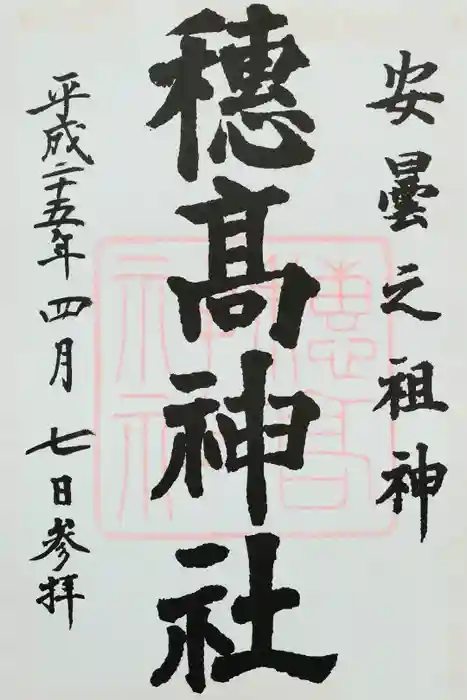 安曇之祖神
穗髙神社
平成二十五年四月七日参拝
穗髙神社